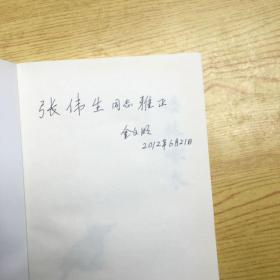 张伟生同志雅正
2012年6月21日